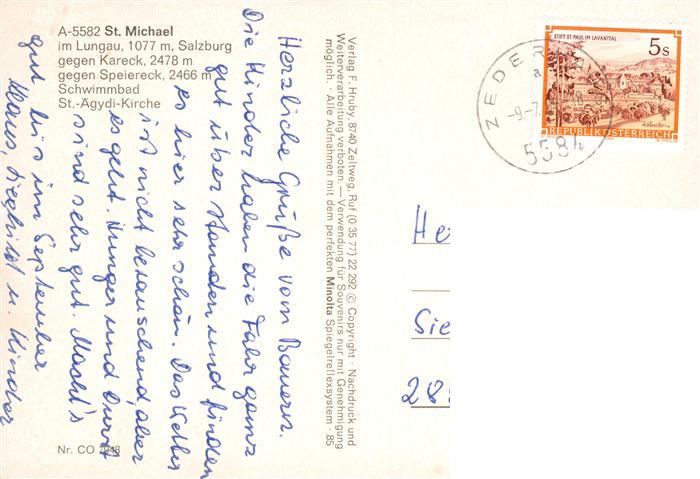 A-5582 St. Michael
im Lungau, 1077 m, Salzburg
gegen Kareck, 2478 m
gegen Speiereck, 2466 m
Schwimmbad
St.-Ägydi-Kirche
Herzliche Grüße vom Bauern.
Die Kinder haben die Fahr ganz
gut über standen und finden
es hier sehr schön. Das Wetter
ist nicht berauschend, aber
es geht. Hunger und Durst
sind sehr gut. Macht's
gut bis im September
Klaus, Sieghild u. Kinder
Nr. CO 7948
Verlag F. Hruby, 8740 Zeltweg, Ruf (0 35 77) 22 292 © Copyright · Nachdruck und
Weiterverarbeitung verboten. — Verwendung für Souvenirs nur mit Genehmigung
möglich. · Alle Aufnahmen mit dem perfekten Minolta Spiegelreflexsystem · 85
STIFT ST. PAUL IM LAVANTTAL
5 s
REPUBLIK ÖSTERREICH
ZEDER
a
-9.-7.
5584
He
Sie
28